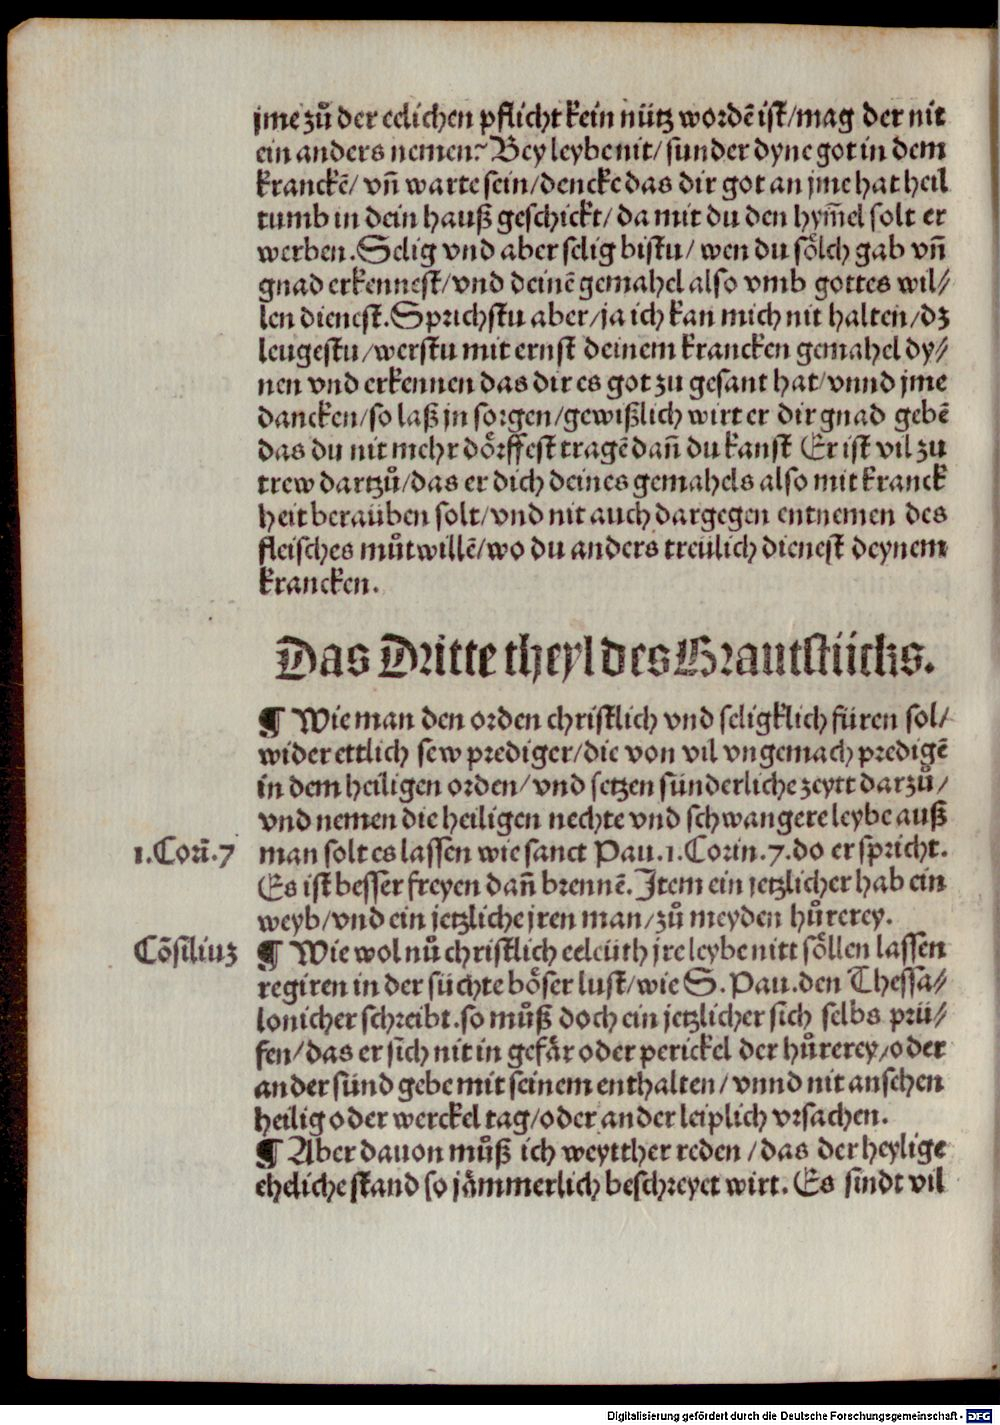 jme zů der eelichen pflicht kein nütz wordē ist/mag der nit
ein anders nemen? Bey leybe nit/ sunder dyne got in dem
kranckē/ vn̄ warte sein/dencke das dir got an jme hat heil
tumb in dein hauß geschickt/ da mit du den hym̄el solt er
werben. Selig vnd aber selig bistu/ wen du sölch gab vn̄
gnad erkennest/vnd deinē gemahel also vmb gottes wil/
len dienest. Sprichstu aber/ja ich kan mich nit halten/dz
leugestu/werstu mit ernst deinem krancken gemahel dy/
nen vnd erkennen das dir es got zu gesant hat/vnnd jme
dancken/so laß jn sorgen/gewißlich wirt er dir gnad gebē
das du nit mehr dörffest tragē dan̄ du kanst Er ist vil zu
trew dartzů/das er dich deines gemahels also mit kranck
heit berauben solt/vnd nit auch dargegen entnemen des
fleisches můtwillē/wo du anders treülich dienest deynem
krancken.
Das Dritte theyl des Brautstücks.
¶ Wie man den orden christlich vnd seligklich füren sol/
wider ettlich sew prediger/die von vil vngemach predigē
in dem heiligen orden/ vnd setzen sünderliche zeytt darzů/
vnd nemen die heiligen nechte vnd schwangere leybe auß
1.Corn̄.7 man solt es lassen wie sanct Pau.1.Corin.7.do er spricht.
Es ist besser freyen dan̄ brennē. Item ein jetzlicher hab ein
weyb/vnd ein jetzliche jren man/zů meyden hůrerey.
Cōsiliuz ¶ Wie wol nů christlich eeleüth jre leybe nitt söllen lassen
regiren in der süchte böser lust/wie S. Pau.den Thessa/
lonicher schreibt.so můß doch ein jetzlicher sich selbs prü/
fen/das er sich nit in gefär oder perickel der hůrerey/oder
ander sünd gebe mit seinem enthalten/ vnnd nit ansehen
heilig oder werckel tag/oder ander leiplich vrsachen.
¶ Aber dauon můß ich weytther reden /das der heylige
eheliche stand so jämmerlich beschreyet wirt. Es sindt vil
Digitalisierung gefördert durch die Deutsche Forschungsgemeinschaft - DFG